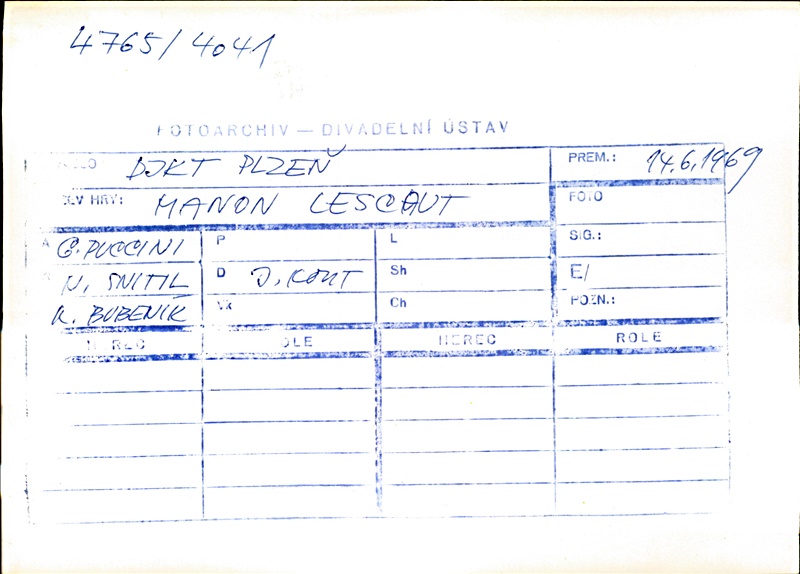 4765/4041
FOTOARCHIV — DIVADELNÍ ÚSTAV
DJKT PLZEŇ PREM.: 14.6.1969
HRY: MANON LESCAUT FOTO
A G. PUCCINI P L SIG.:
N. SNITIL D J. KOUT Sh E/
K. BUBENÍK Vk Ch POZN.:
HEREC OLE HEREC ROLE